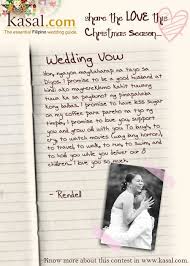 Kasal.com
The essential Filipino wedding guide.
share the LOVE this
Christmas Season...
Wedding Vow
Hon, ngayon magkaharap na tayo sa
Diyos, I promise to be a good husband at
hindi ako magrereklamo kahit tuwing
tuwa ka sa paglamot ng pinapakain
kong balbas. I promise to have less sugar
on my coffee para pareho na tayo ng
timpla. I promise to love you, support
you and grow old with you. To laugh, to
cry, to watch movies (wag lang horror),
to travel, to walk, to run, to swim, and
to hold you while you deliver our 8
children. I love you so much.
- Rendell
Know more about this contest in www.kasal.com